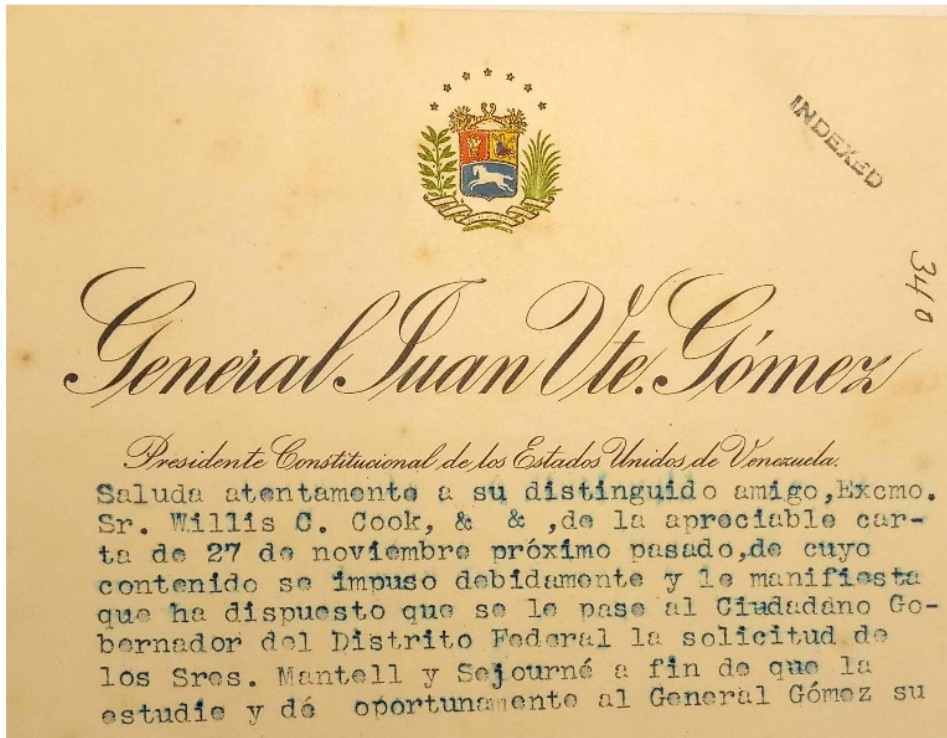 INDEXED
340
General Juan Vte. Gómez
Presidente Constitucional de los Estados Unidos de Venezuela.
Saluda atentamente a su distinguido amigo,Excmo.
Sr. Willis C. Cook, & & ,de la apreciable car-
ta de 27 de noviembre próximo pasado,de cuyo
contenido se impuso debidamente y le manifiesta
que ha dispuesto que se le pase al Ciudadano Go-
bernador del Distrito Federal la solicitud de
los Sres. Mantell y Sejourné a fin de que la
estudie y dé oportunamente al General Gómez su